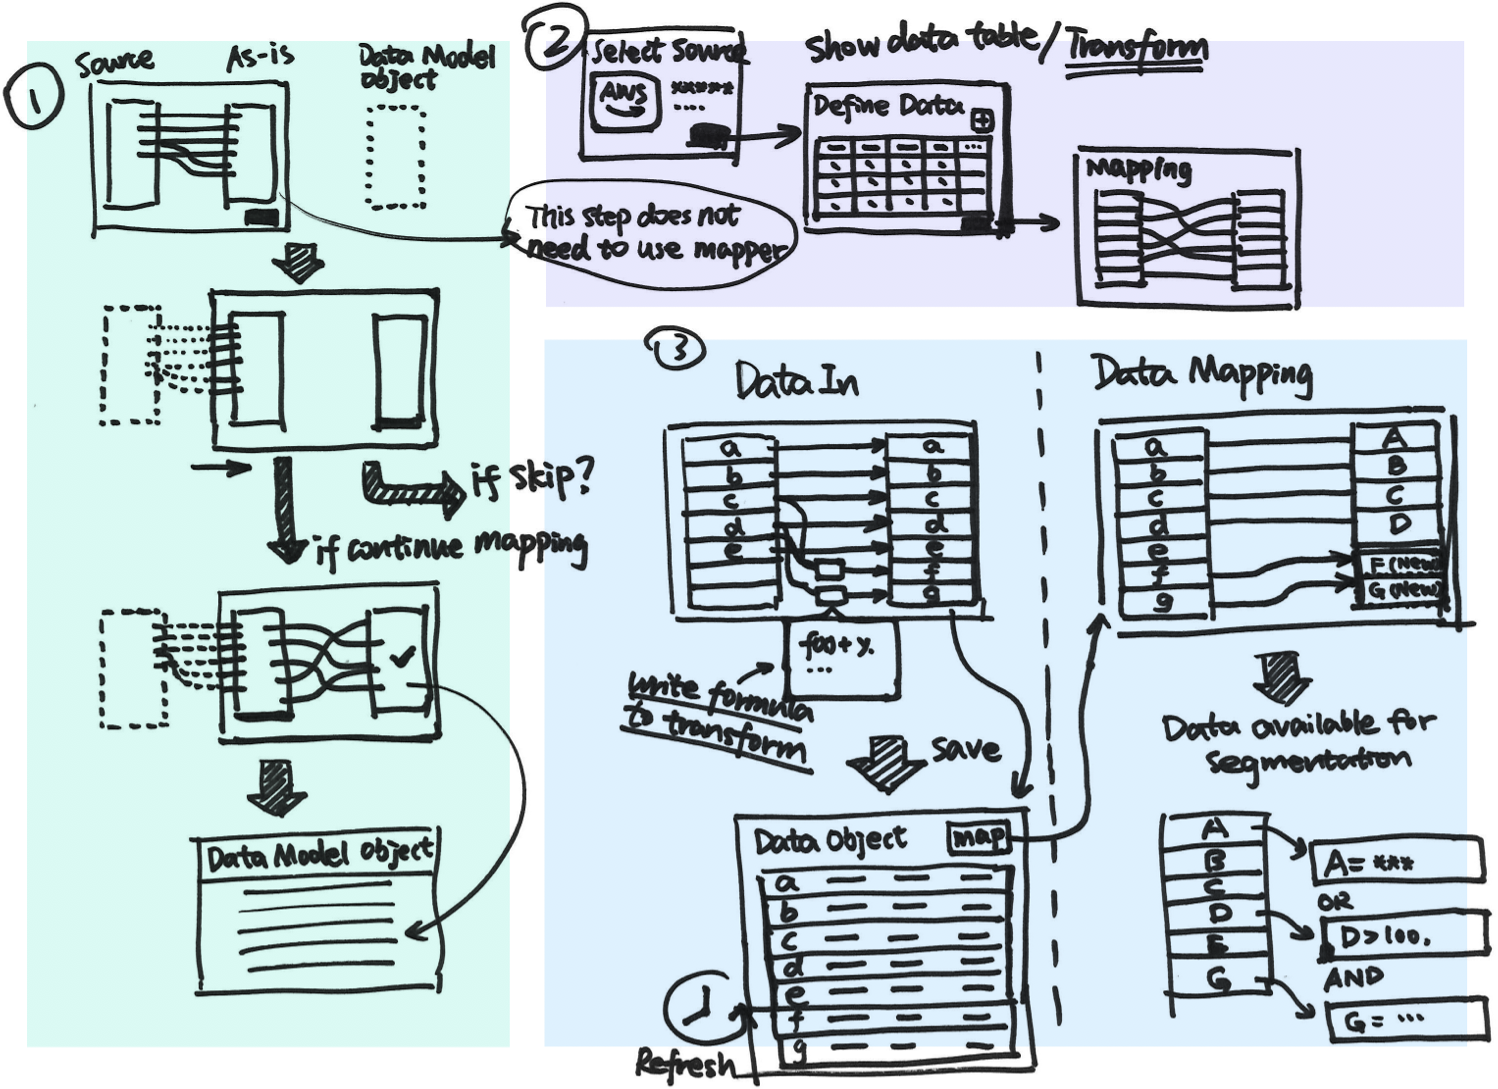 1
Source
As-is
Data Model
object
if skip?
if continue mapping
Data Model object
2
Select Source
AWS
******
....
This step does not
need to use mapper
Show data table/Transform
Define Data
+
...
Mapping
3
Data In
a
b
c
d
e
a
b
c
d
e
f
g
foo+y.
...
write formula
to transform
save
Data Object
map
a
b
c
d
e
f
g
Refresh
Data Mapping
a
b
c
d
e
f
g
A
B
C
D
F(New)
G(New)
Data available for
segmentation
A
B
C
D
E
G
A= ***
OR
D>100.
AND
G= ...